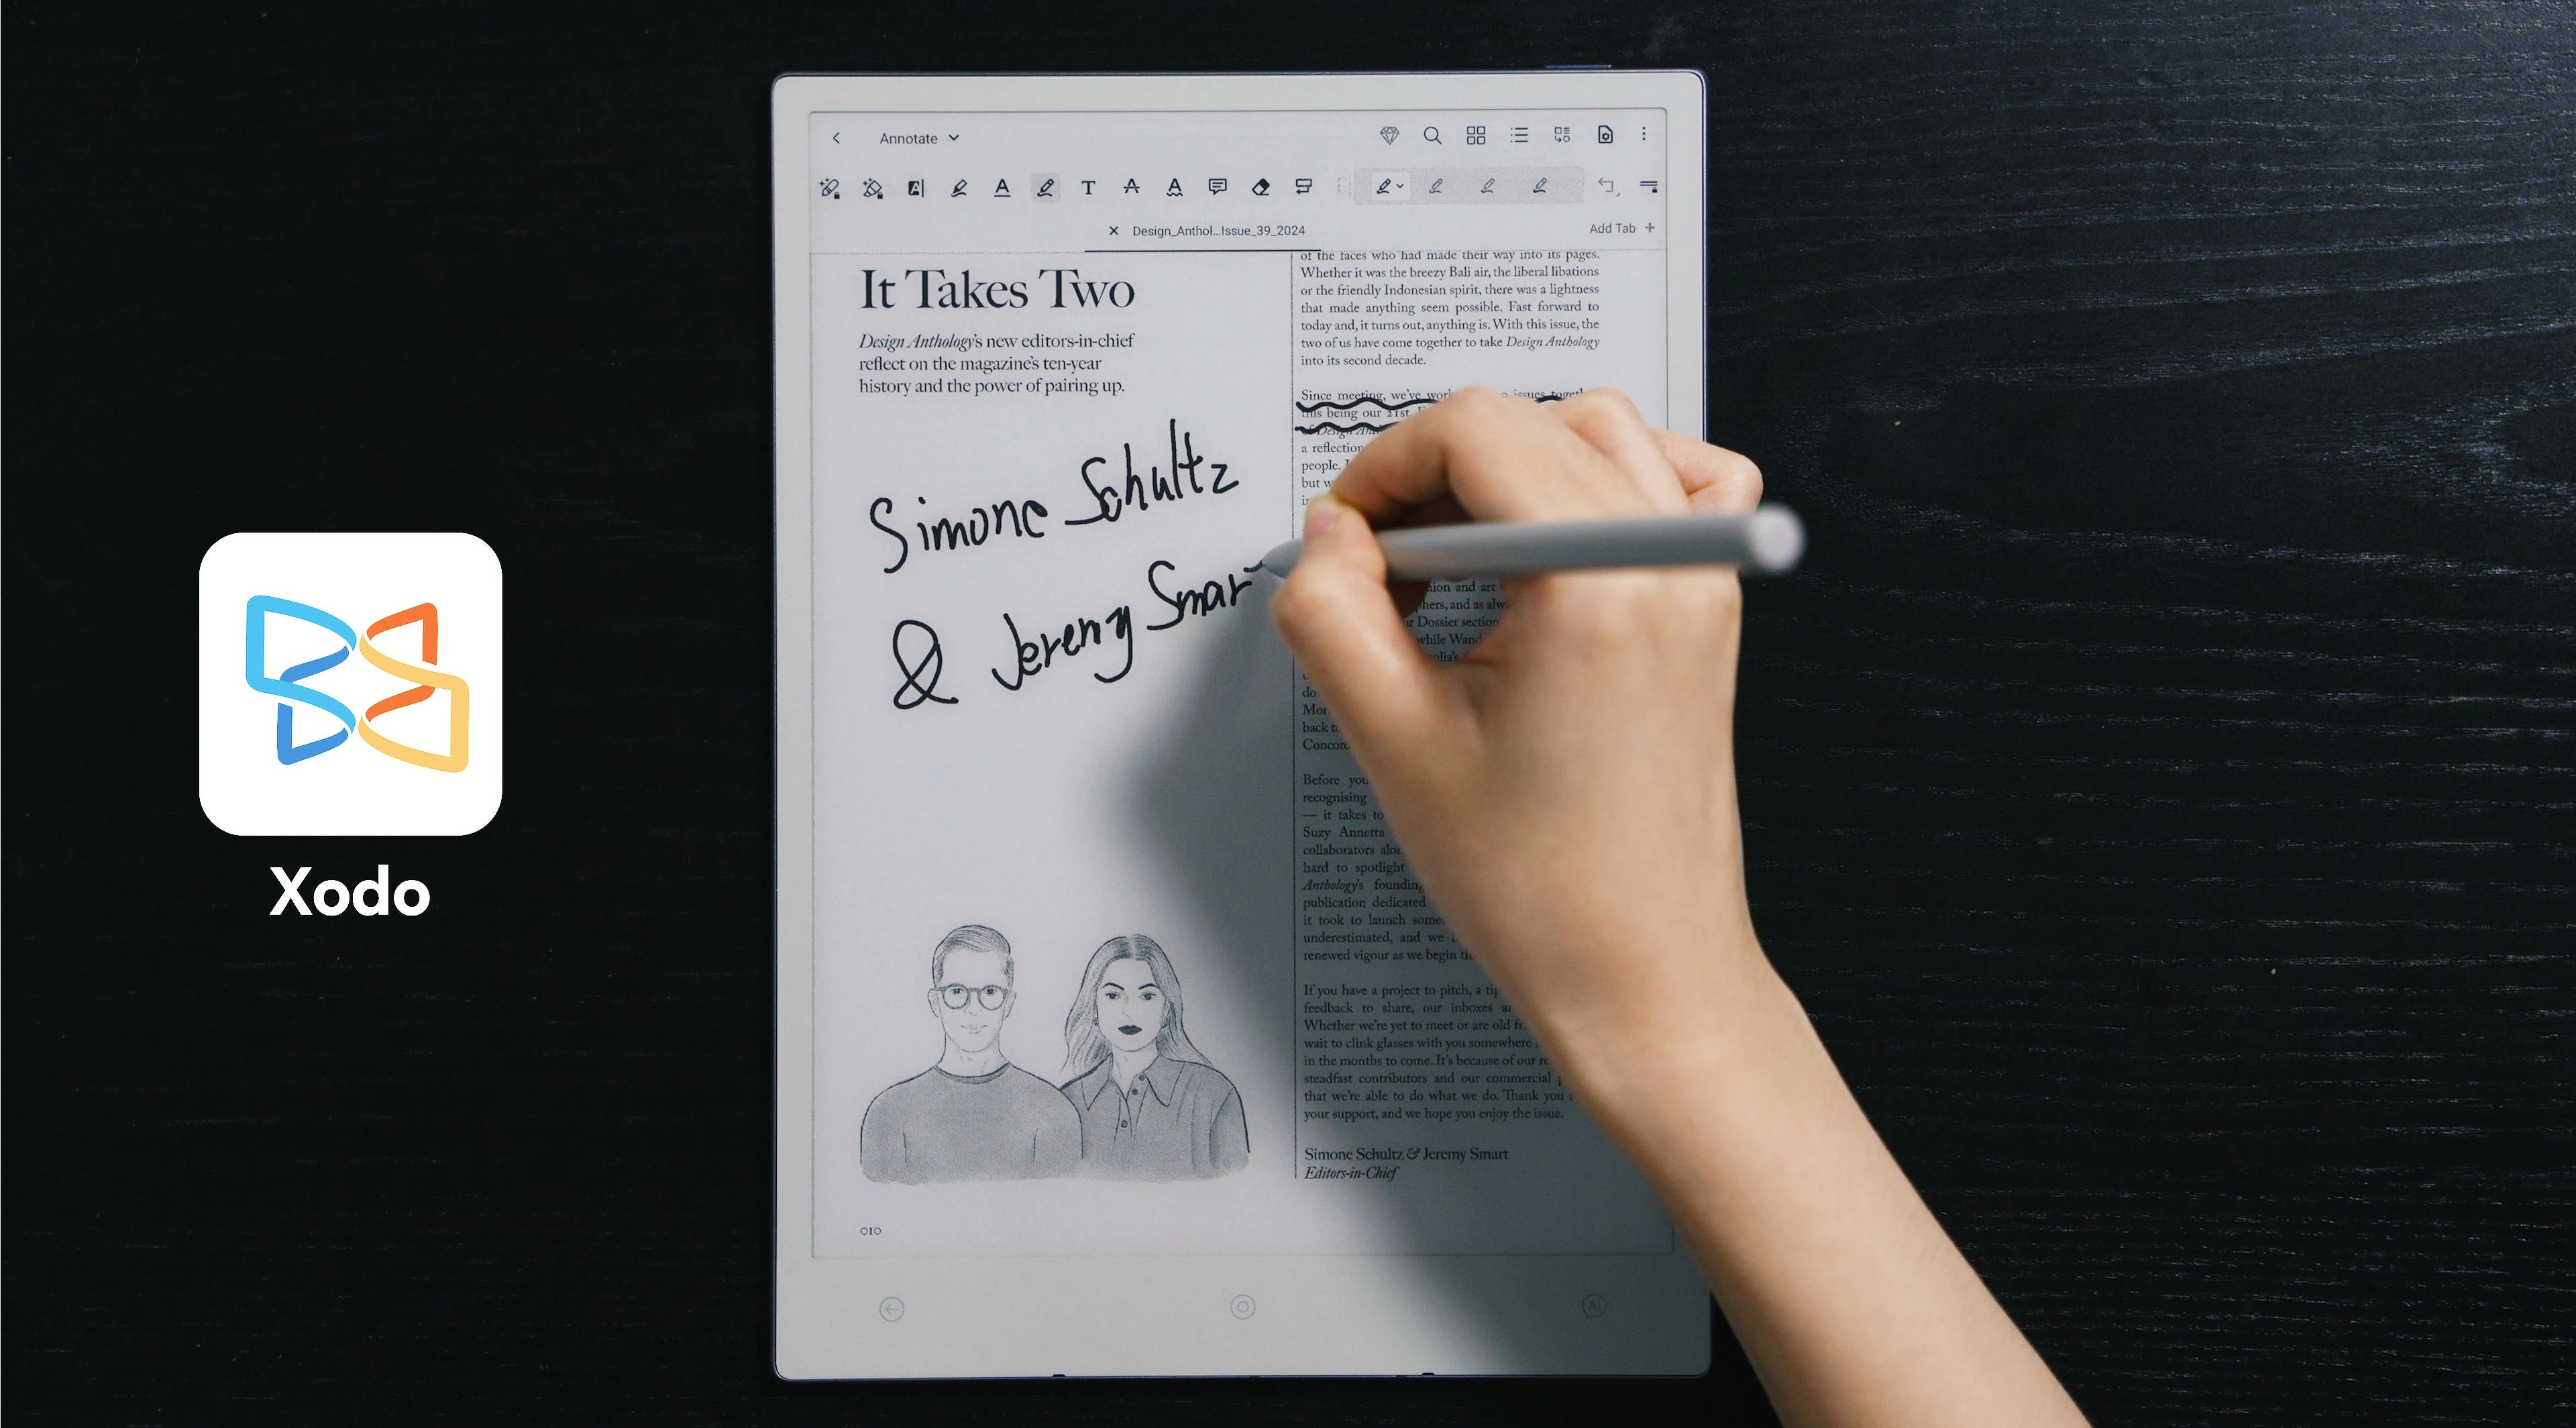 Xodo
Annotate
Design_Anthol...Issue_39_2024
Add Tab +
It Takes Two
Design Anthology's new editors-in-chief
reflect on the magazine's ten-year
history and the power of pairing up.
Simone Schultz
& Jeremy Smar
010
of the faces who had made their way into its pages.
Whether it was the breezy Bali air, the liberal libations
or the friendly Indonesian spirit, there was a lightness
that made anything seem possible. Fast forward to
today and, it turns out, anything is. With this issue, the
two of us have come together to take Design Anthology
into its second decade.
Since meeting, we've issues
this being our 21st.
of Design
a reflection
people.
but
and art
while
back
Before you
recognising
— it takes to
Suzy Annetta
collaborators
hard to spotlight
Anthology's founding
publication dedicated
it took to launch
underestimated, and we
renewed vigour as we begin
If you have a project to pitch, a
feedback to share, our inboxes
Whether we're yet to meet or are old
wait to clink glasses with you somewhere
in the months to come. It's because of our
steadfast contributors and our commercial
that we're able to do what we do. Thank you
your support, and we hope you enjoy the issue.
Simone Schultz & Jeremy Smart
Editors-in-Chief
AI